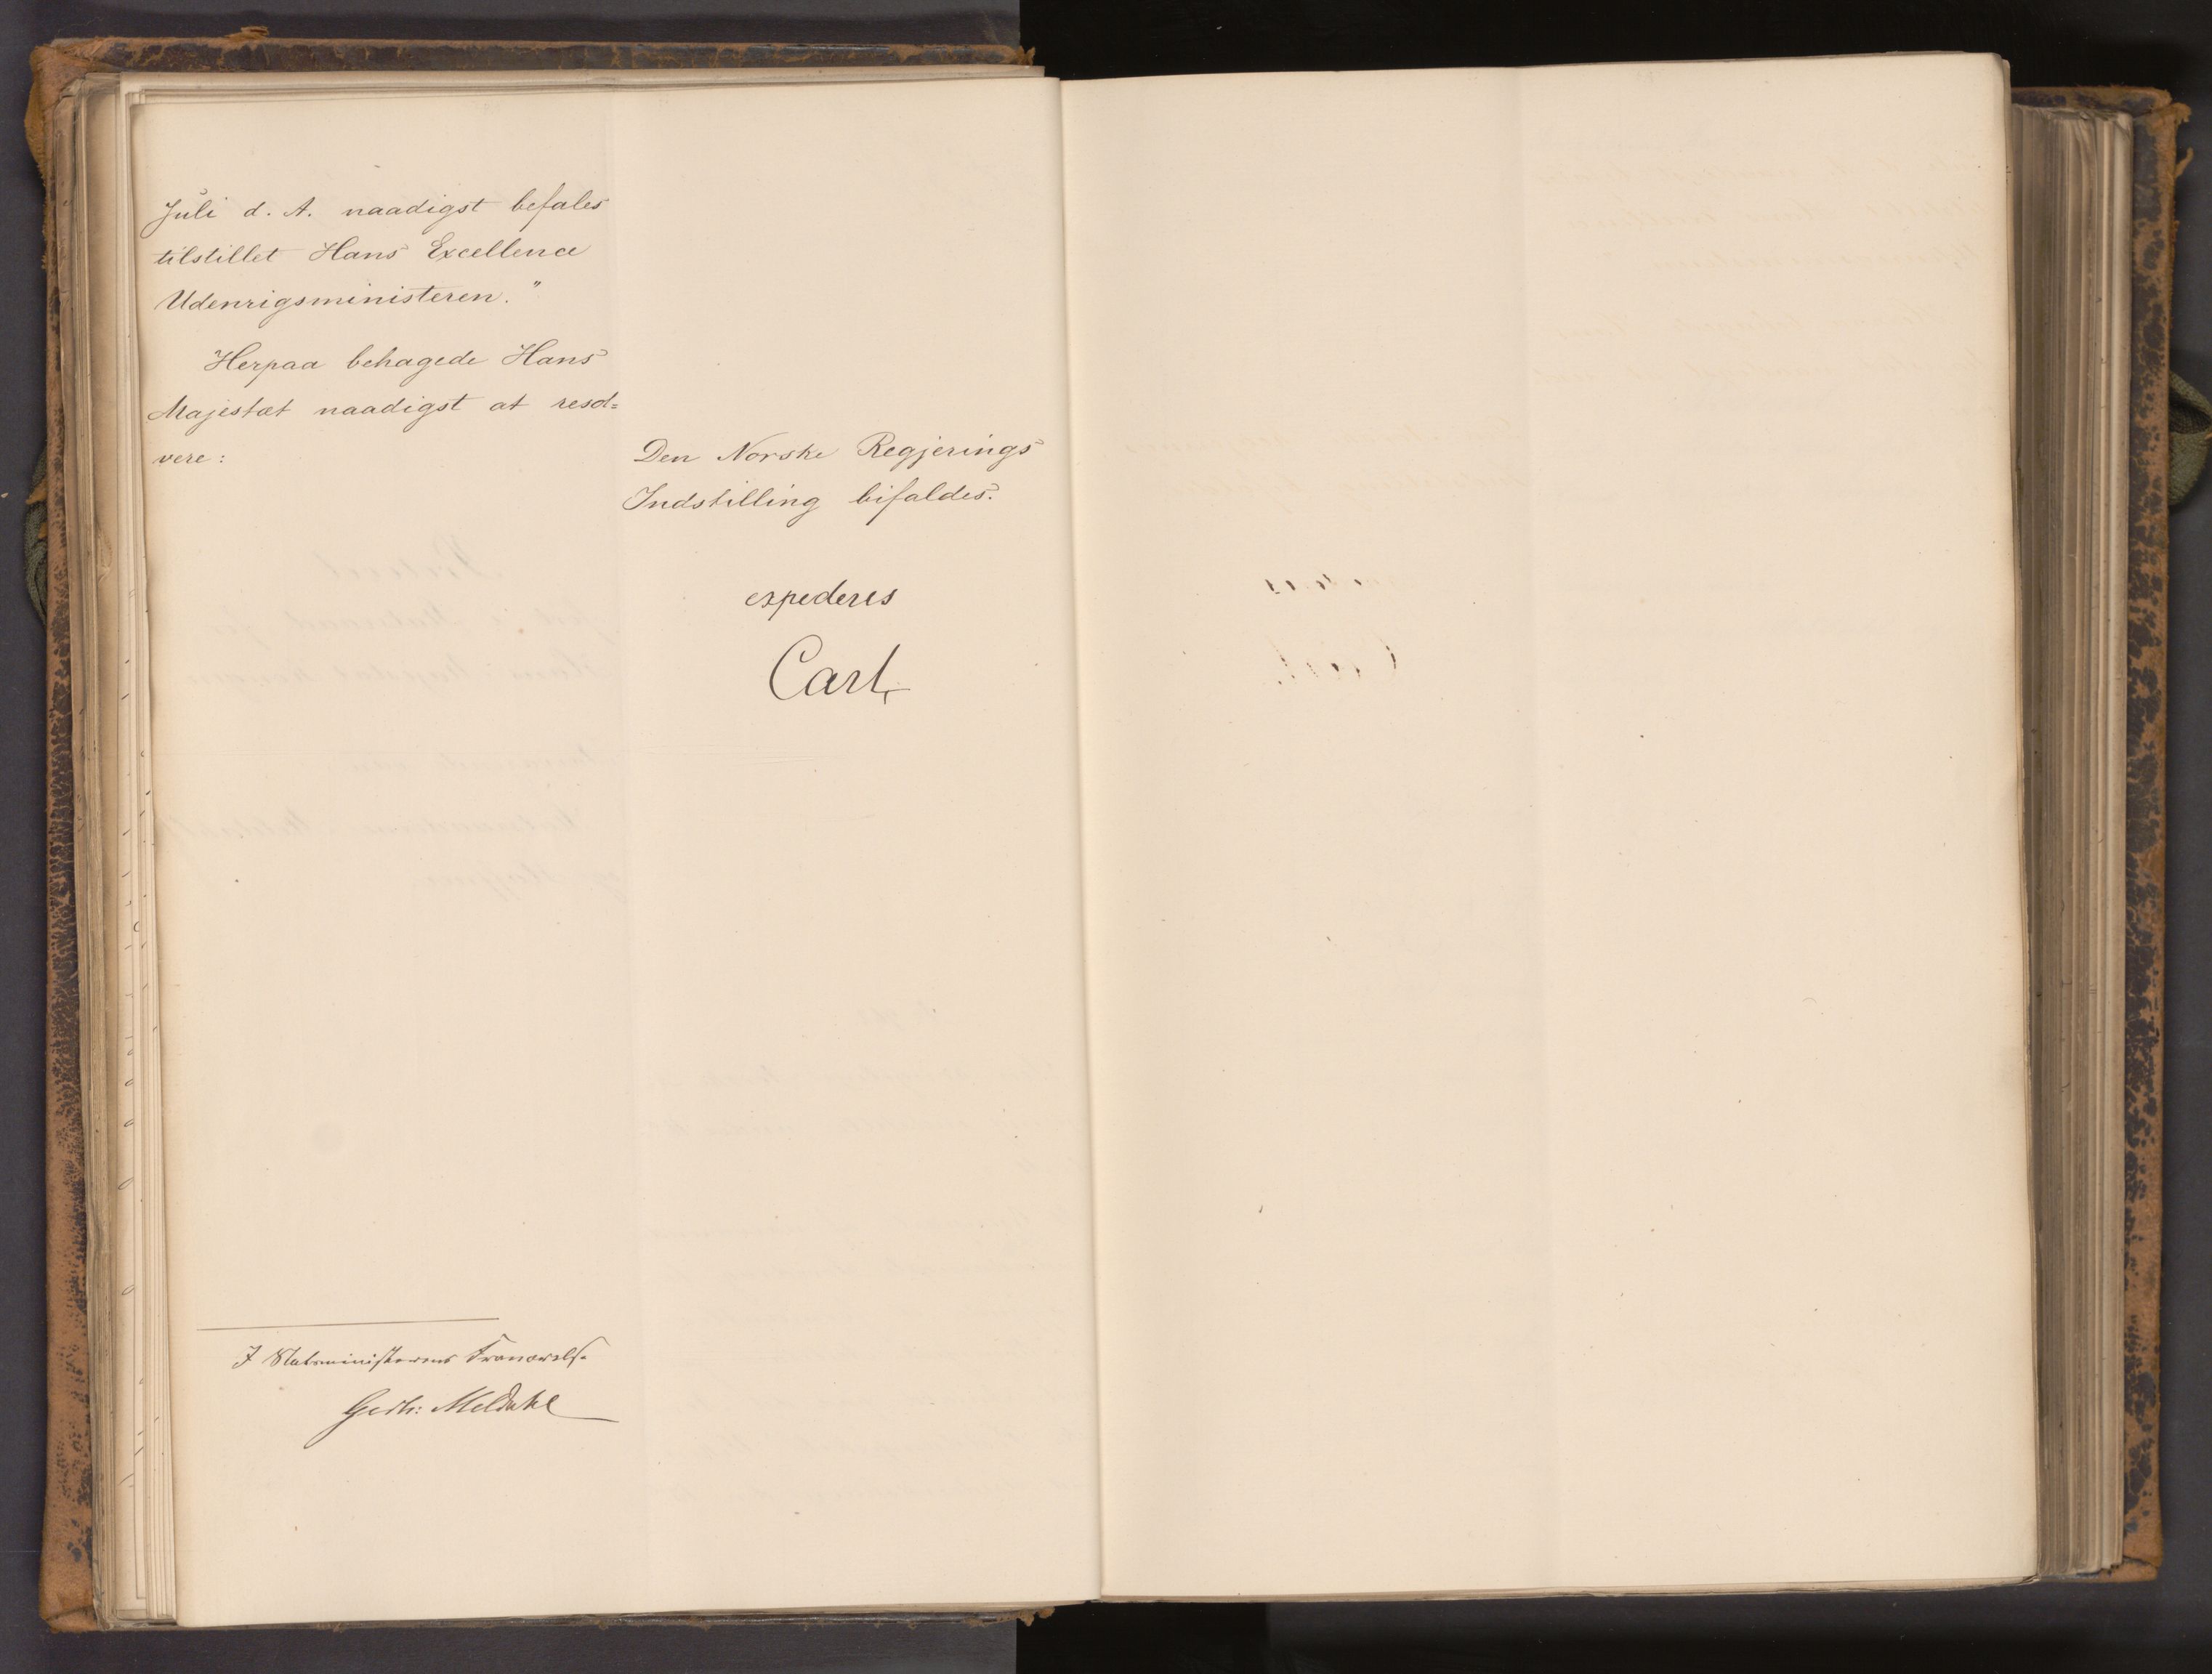 Juli d. A. naadigst befales
tilstillet Hans Excellence
Udenrigsministeren."
Herpaa behagede Hans
Majestæt naadigst at resol=
vere:
Den Norske Regjerings
Indstilling bifaldes.
expederes
Carl
I Statsministerens Fraværelse
Gerh: Meldahl